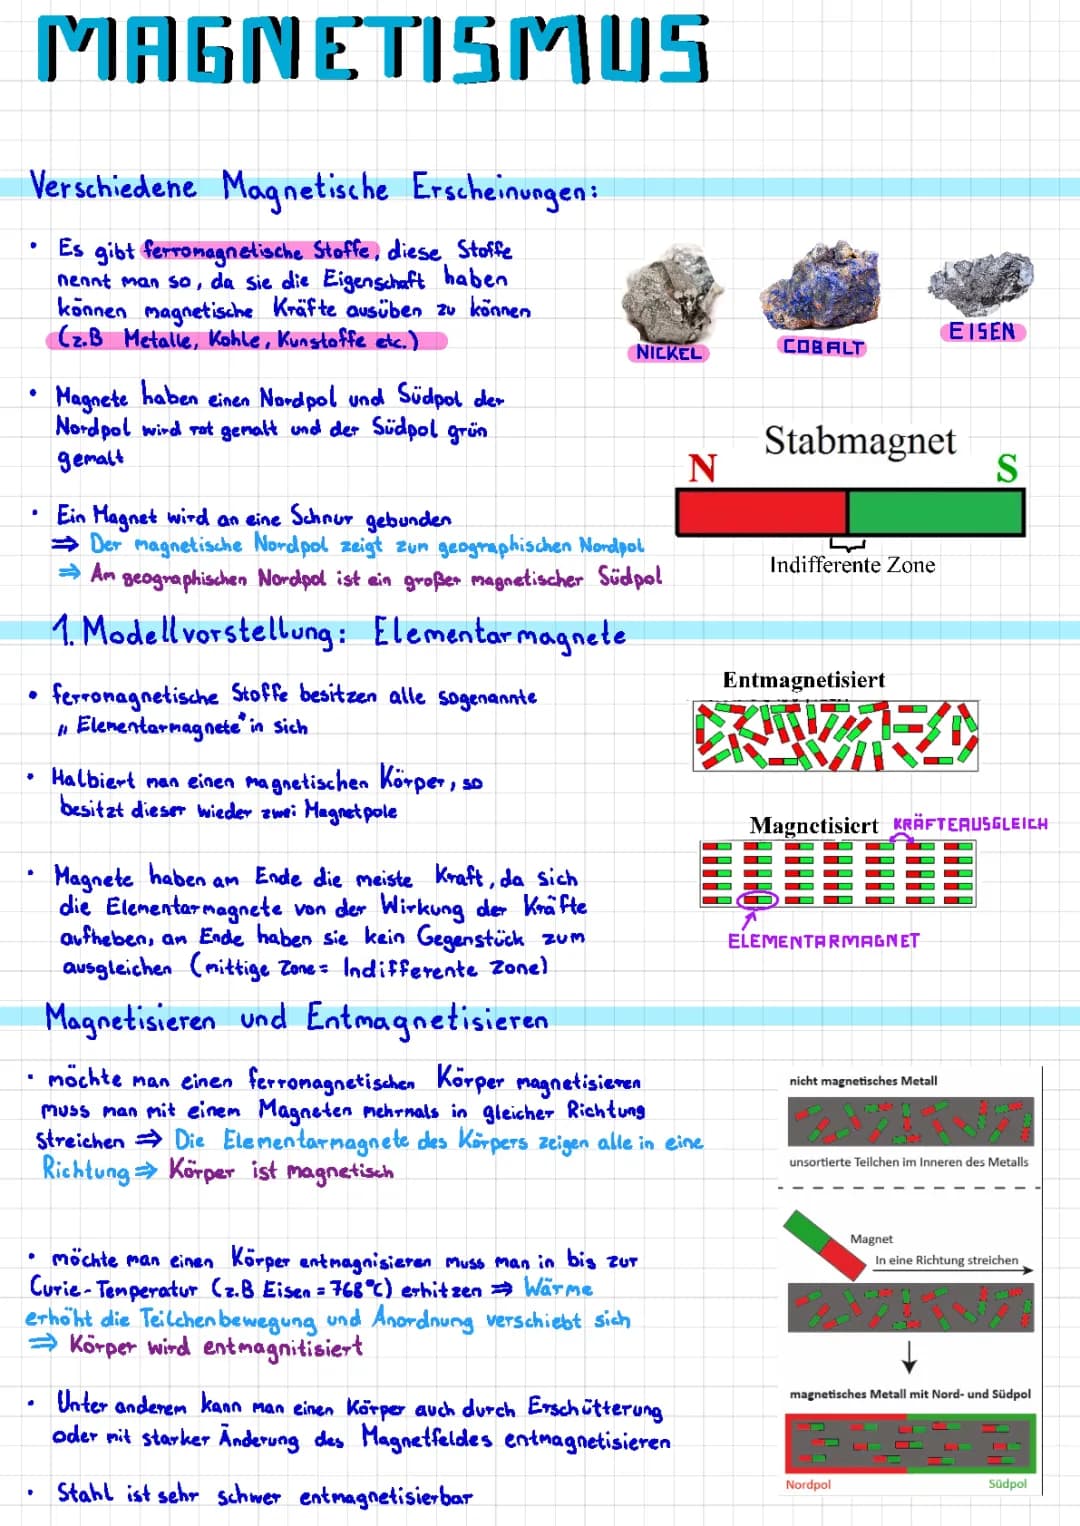 MAGNETISMUS
Verschiedene Magnetische Erscheinungen:
• Es gibt ferromagnetische Stoffe, diese Stoffe
nennt man so, da sie die Eigenschaft haben
können magnetische Kräfte ausüben zu können
(z.B Metalle, Kohle, Kunstoffe etc.)
NICKEL
COBALT
EISEN
• Magnete haben einen Nordpol und Südpol der
Nordpol wird rot gemalt und der Südpol grün
gemalt
Stabmagnet
N
S
Indifferente Zone
• Ein Magnet wird an eine Schnur gebunden
⇒ Der magnetische Nordpol zeigt zum geographischen Nordpol
⇒ Am geographischen Nordpol ist ein großer magnetischer Südpol
1. Modellvorstellung: Elementarmagnete
• ferromagnetische Stoffe besitzen alle sogenannte
„Elementarmagnete" in sich
• Halbiert man einen magnetischen Körper, so
besitzt dieser wieder zwei Magnetpole
• Magnete haben am Ende die meiste Kraft, da sich
die Elementarmagnete von der Wirkung der Kräfte
aufheben, an Ende haben sie kein Gegenstück zum
ausgleichen (mittige Zone = Indifferente Zone)
Entmagnetisiert
Magnetisiert
KRÄFTEAUSGLEICH
ELEMENTARMAGNET
Magnetisieren und Entmagnetisieren
• möchte man einen ferromagnetischen Körper magnetisieren
muss man mit einem Magneten mehrmals in gleicher Richtung
streichen ⇒ Die Elementarmagnete des Körpers zeigen alle in eine
Richtung ⇒ Körper ist magnetisch
• möchte man einen Körper entmagnisieren muss man in bis zur
Curie-Temperatur (z.B Eisen = 768°C) erhitzen ⇒ Wärme
erhöht die Teilchenbewegung und Anordnung verschiebt sich
⇒ Körper wird entmagnitisiert
• Unter anderem kann man einen Körper auch durch Erschütterung
oder mit starker Änderung des Magnetfeldes entmagnetisieren
• Stahl ist sehr schwer entmagnetisierbar
nicht magnetisches Metall
unsortierte Teilchen im Inneren des Metalls
Magnet
In eine Richtung streichen
magnetisches Metall mit Nord- und Südpol
Nordpol
Südpol